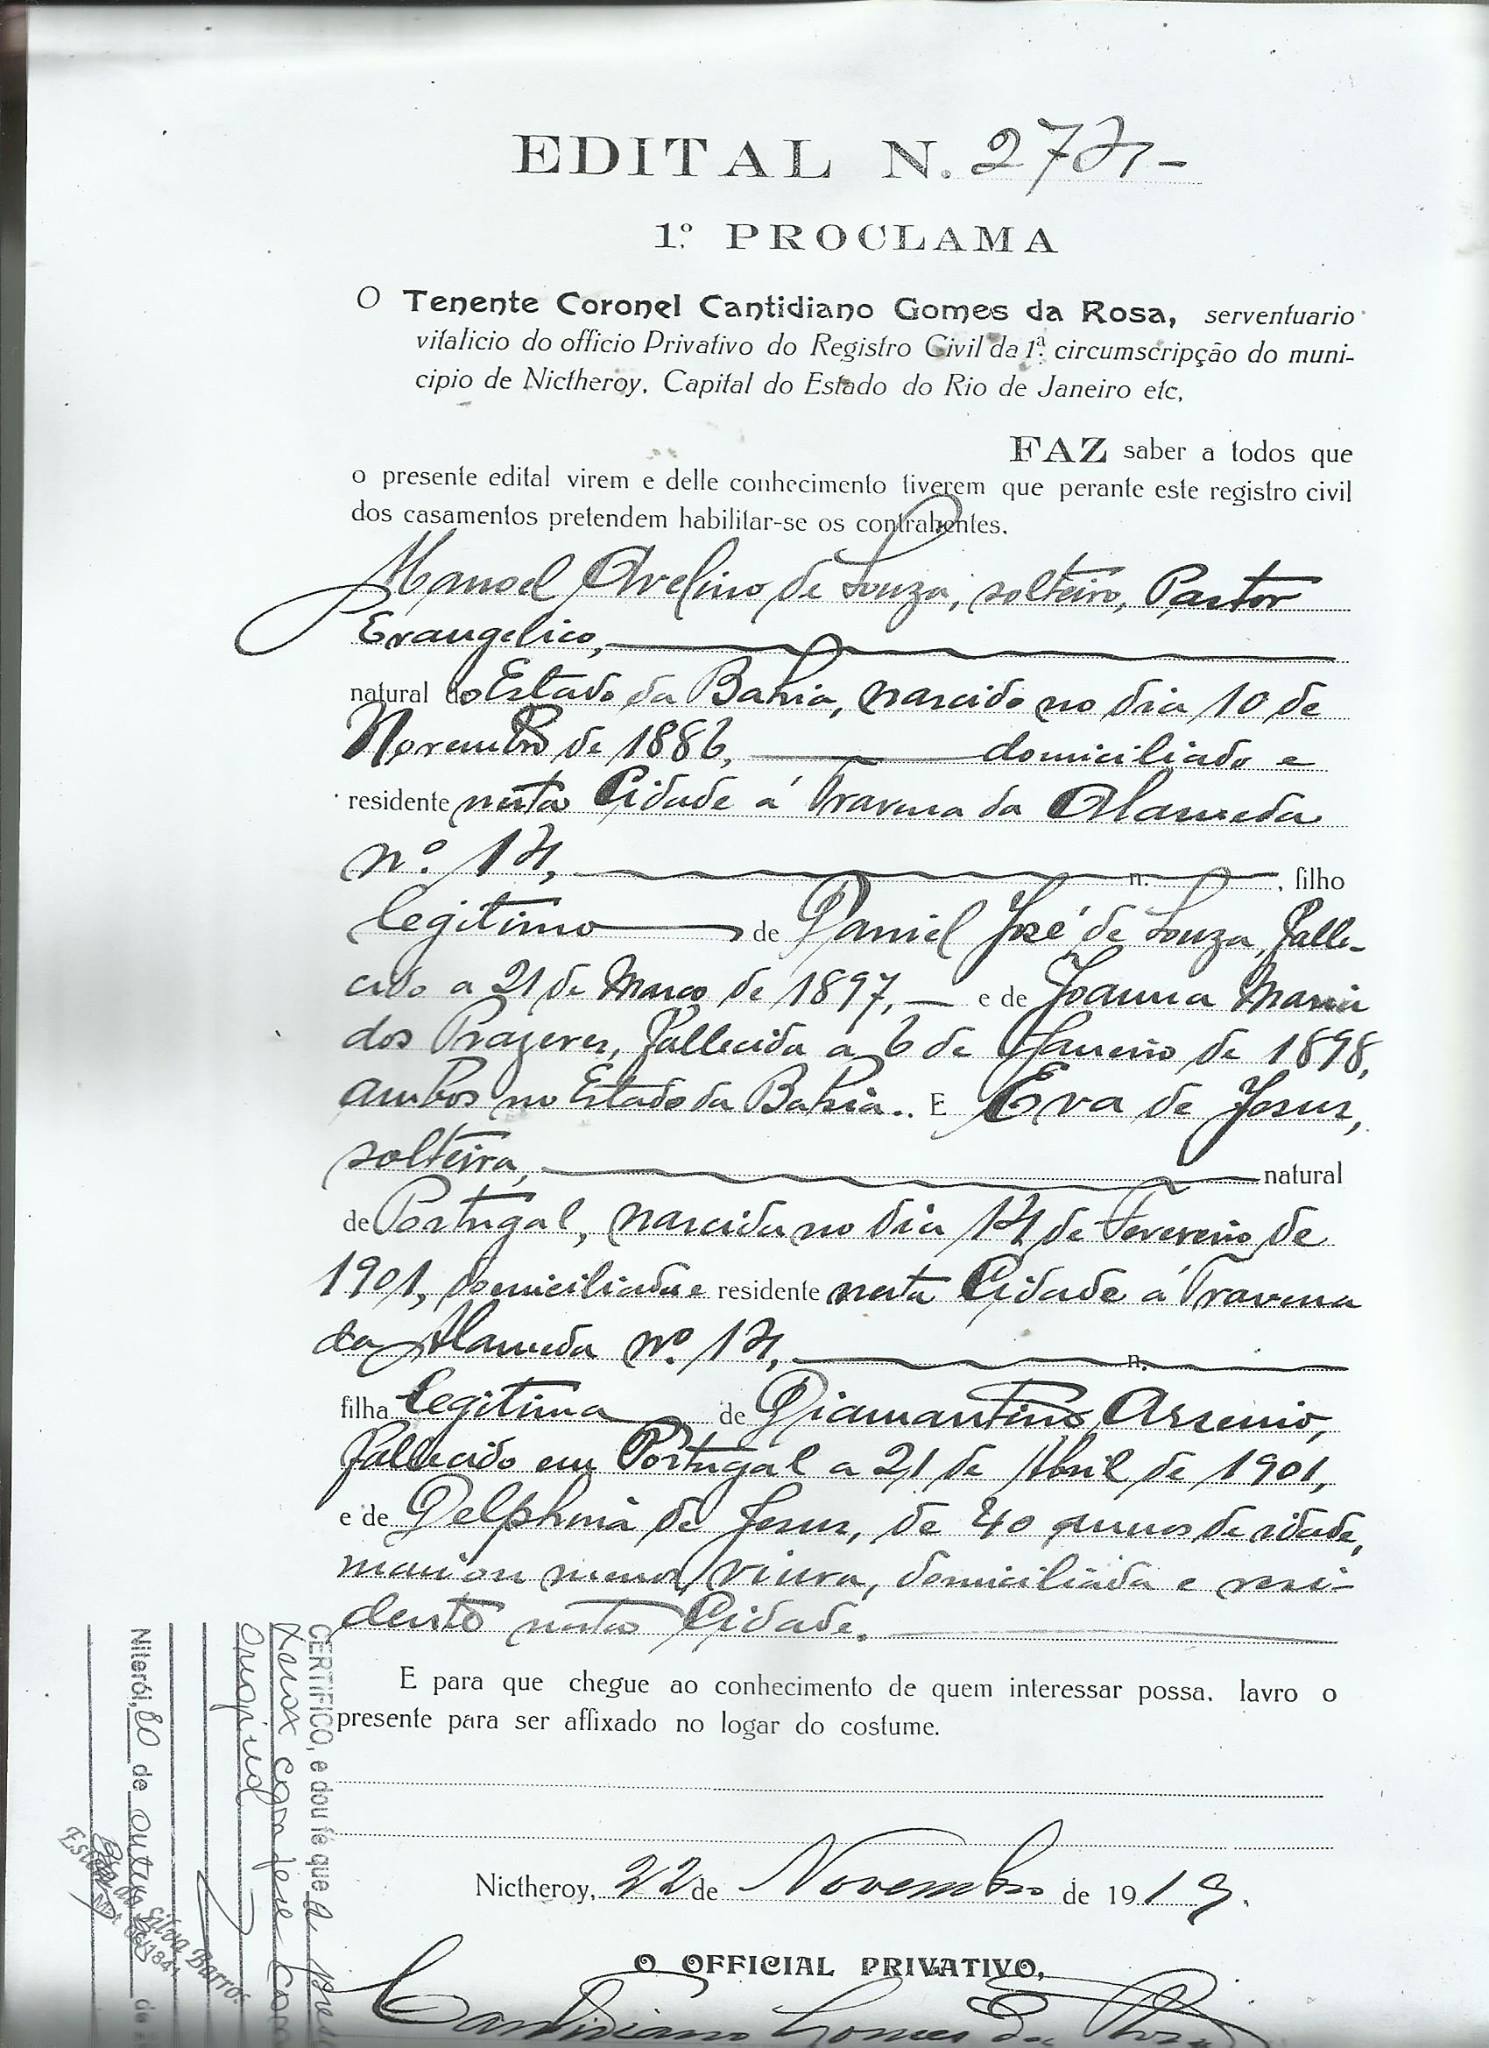 EDITAL N. 274 -
1.º PROCLAMA
O Tenente Coronel Cantidiano Gomes da Rosa, serventuario
vitalicio do officio Privativo do Registro Civil da 1ª. circumscripção do muni-
cipio de Nictheroy, Capital do Estado do Rio de Janeiro etc,
FAZ saber a todos que
o presente edital virem e delle conhecimento tiverem que perante este registro civil
dos casamentos pretendem habilitar-se os contrahentes.
Manoel Avelino de Souza, solteiro, Pastor
Evangelico,
natural do Estado da Bahia, nascido no dia 10 de
Novembro de 1886, domiciliado e
residente nesta Cidade á Travessa da Alameda
nº. 14, n. , filho
legitimo de Daniel José de Souza, falle-
cido a 21 de Março de 1897, - e de Joanna Maria
dos Prazeres, fallecida a 6 de Janeiro de 1898,
ambos no Estado da Bahia.. E Eva de Jesus,
solteira, natural
de Portugal, nascida no dia 14 de Fevereiro de
1901, domiciliada e residente nesta Cidade á Travessa
da Alameda nº. 14, n.
filha legitima de Diamantino Arsenio,
fallecido em Portugal a 21 de Abril de 1901,
e de Delphina de Jesus, de 40 annos de idade,
mais ou menos, viuva, domiciliada e resi-
dente nesta Cidade.
E para que chegue ao conhecimento de quem interessar possa, lavro o
presente para ser affixado no logar do costume.
Nictheroy, 22 de Novembro de 1919.
O OFFICIAL PRIVATIVO,
Cantidiano Gomes da Rosa
CERTIFICO, e dou fé que a pres
Xerox confere com
original
Niterói, 20 de outubro de
Silva Barros